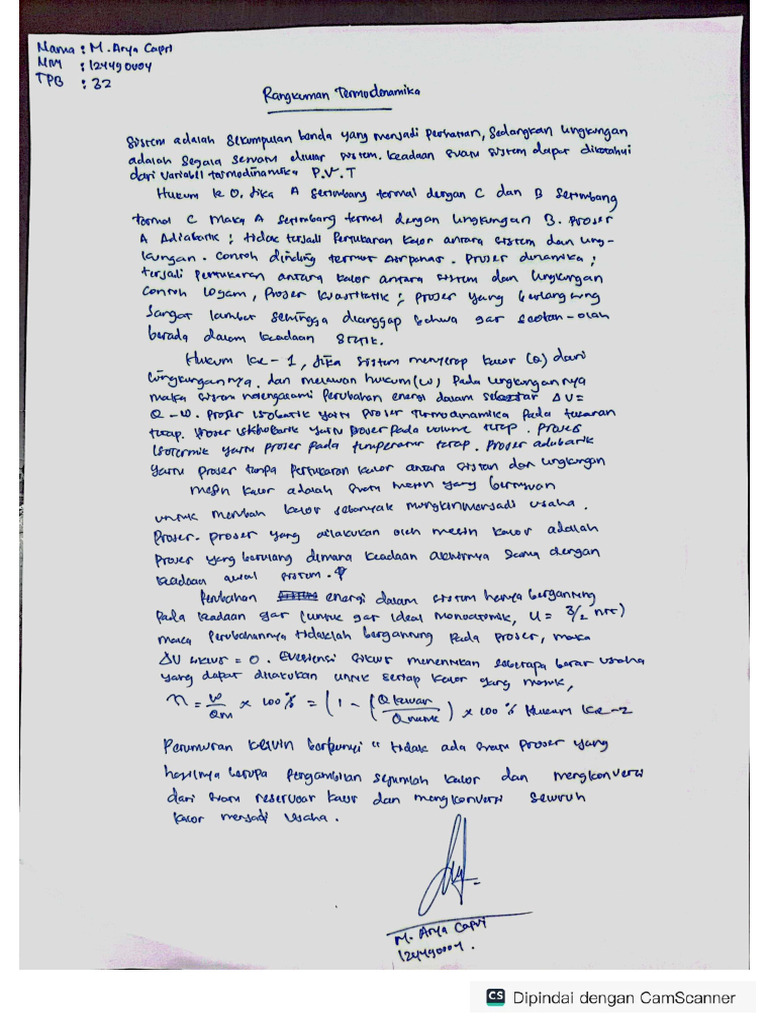 Nama : M. Arya Capri
NIM : 124490004
TPB : 32
Rangkuman Termodenamika
Sistem adalah sekumpulan benda yang menjadi perhatian, sedangkan lingkungan
adalah segala sesuatu diluar sistem. Keadaan suatu sistem dapat diketahui
dari variabel termodinamika P.V.T
Hukum ke 0. Jika A setimbang termal dengan C dan B setimbang
termal C maka A setimbang termal dengan lingkungan B. Proses
A Adiabatik ; tidak terjadi pertukaran kalor antara sistem dan ling-
kungan. Contoh dinding termus. Proses dinamika ;
terjadi pertukaran antara kalor antara sistem dan lingkungan
Contoh logam, Proses kuastitatik ; proses yang berlangsung
sangat lambat sehingga dianggap bahwa gas seolah-olah
berada dalam keadaan statik.
Hukum ke-1, Jika sistem menyerap kalor (Q) dari
lingkungannya. dan melawan hukum (W) pada lingkungannya
maka sistem mengalami perubahan energi dalam sebesar ΔU=
Q-W. Proses isobarik yaitu proses termodinamika pada tekanan
tetap. Proses yaitu proses pada volume tetap. Proses
isotermik yaitu proses pada temperatur tetap. Proses adiabatik
yaitu proses tanpa pertukaran kalor antara sistem dan lingkungan
mesin kalor adalah suatu mesin yang bertujuan
untuk merubah kalor sebanyak mungkin menjadi usaha.
Proses-proses yang dilakukan oleh mesin kalor adalah
proses yang berulang dimana keadaan akhirnya sama dengan
keadaan awal sistem.
Perubahan energi dalam sistem hanya bergantung
pada keadaan gas (untuk gas ideal monoatomik, U = 3/2 nRT)
maka perubahannya tidaklah bergantung pada proses, maka
ΔU siklus = 0. Efesiensi siklus menentukan seberapa besar usaha
yang dapat dilakukan untuk setiap kalor yang masuk,
η = W/Qm × 100% = (1 - (Q keluar/Q masuk) × 100% Hukum ke-2
Perumusan Kelvin berbunyi " tidak ada suatu proses yang
hasilnya berupa pengambilan sejumlah kalor dan mengkonversi
dari suatu reservoar kalor dan mengkonversi seluruh
kalor menjadi usaha.
M. Arya Capri
124490004.
CS Dipindai dengan CamScanner